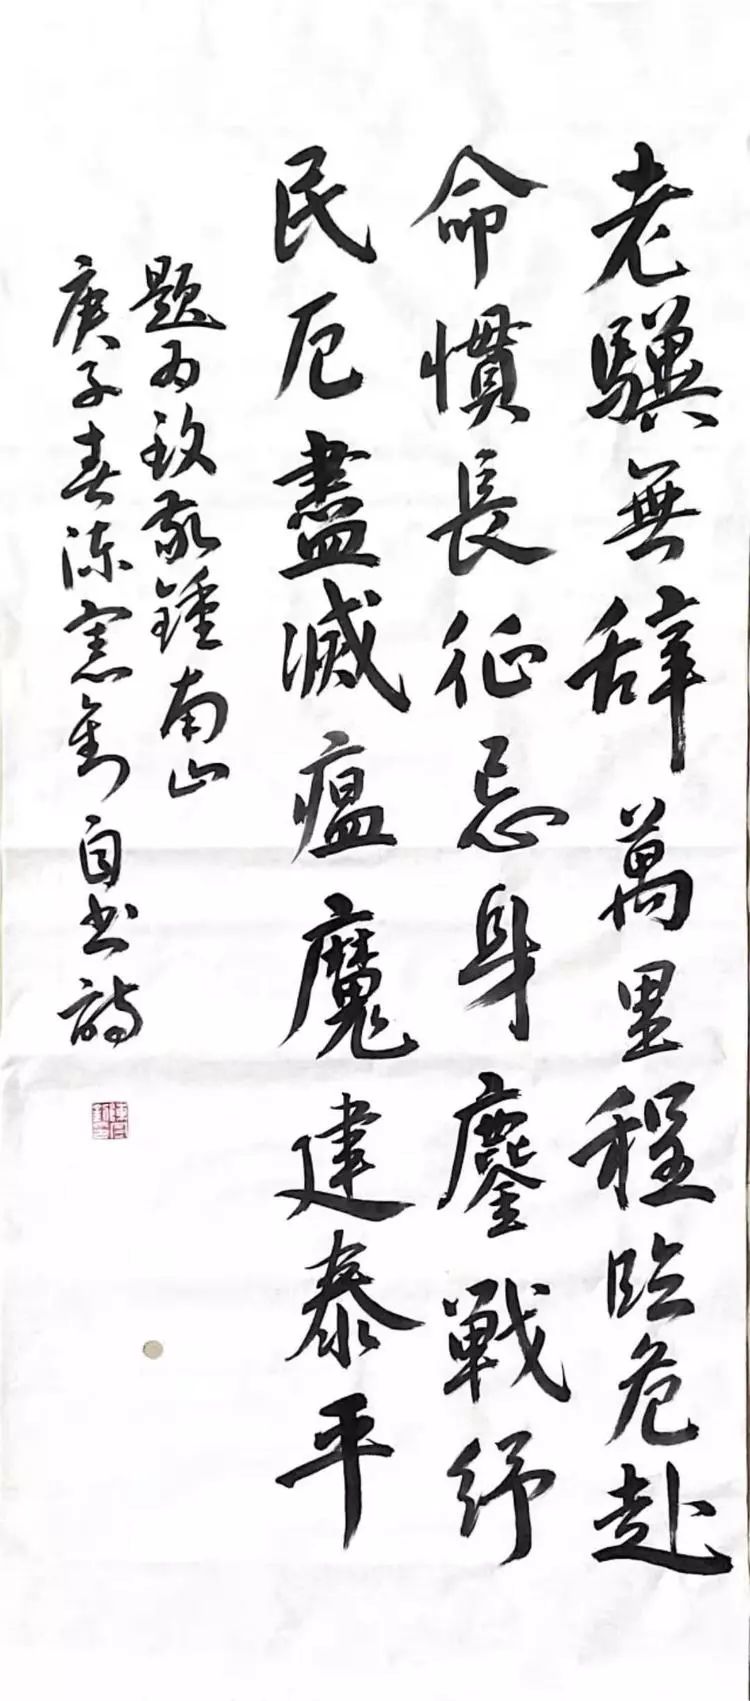 老驥無辭萬里程臨危赴
命慣長征忘身鏖戰紓
民厄盡滅瘟魔建泰平
題為致敬鍾南山
庚子春陳憲自书詩